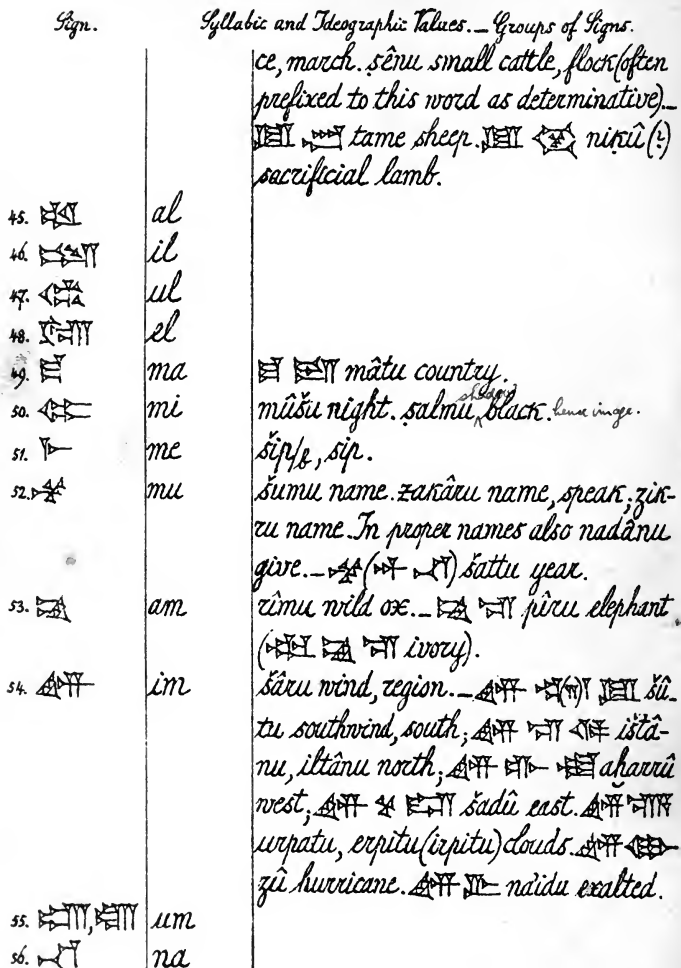 Sign. Syllabic and Ideographic Values. — Groups of Signs.
ce, march. ṣênu small cattle, flock (often
prefixed to this word as determinative).—
𒇻 tame sheep. 𒇻 niḳû (?)
sacrificial lamb.
45. 𒀠 al
46. 𒅋 il
47. 𒌌 ul
48. 𒂖 el
49. 𒈠 ma 𒈠 𒁕 mâtu country.
50. 𒈪 mi mûšu night. ṣalmu, black. hence image.
51. 𒈨 me šip/b, sip.
52. 𒈬 mu šumu name. zakâru name, speak; zik-
ru name. In proper names also nadânu
give. — 𒈬 (𒀭 𒈾) šattu year.
53. 𒄠 am rîmu wild ox. — 𒄠 𒋛 pîru elephant
(𒅗 𒄠 𒋛 ivory).
54. 𒅎 im šâru wind, region. — 𒅎 𒇻 šû-
tu southwind, south; 𒅎 𒋛 𒁲 ištâ-
nu, iltânu north; 𒅎 𒈥 𒌅 aḫarrû
west; 𒅎 𒆳 𒊏 šadû east. 𒅎 𒋛𒀀
urpatu, erpitu (irpitu) clouds. 𒅎 𒂁
zû hurricane. 𒅎 𒌇 nâ'idu exalted.
55. 𒌝, 𒌝 um
56. 𒈾 na